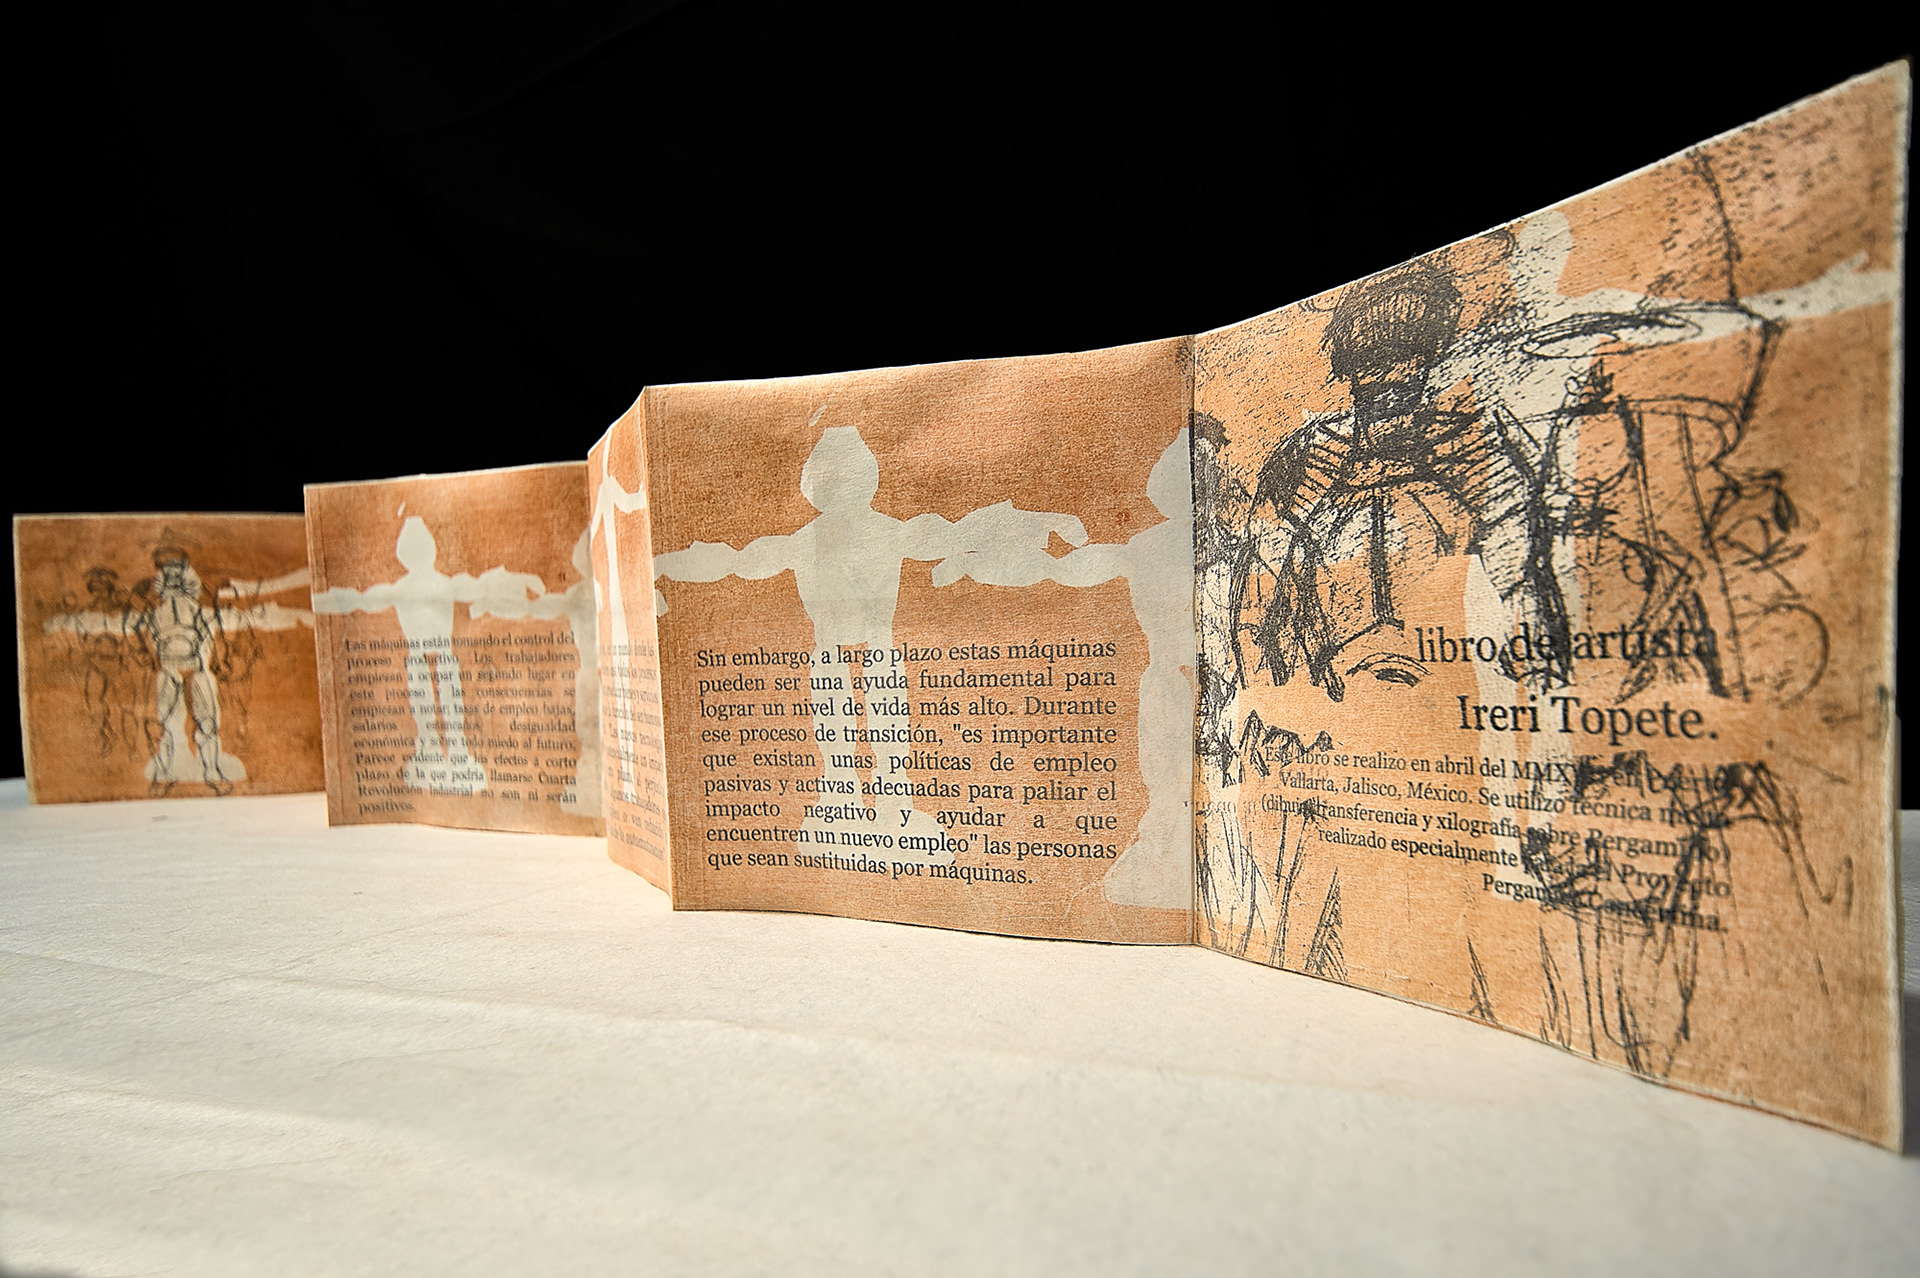 Las máquinas están tomando el control del
proceso productivo. Los trabajadores
empiezan a ocupar un segundo lugar en
este proceso y las consecuencias se
empiezan a notar; tasas de empleo bajas,
salarios estancados, desigualdad
económica y sobre todo miedo al futuro.
Parece evidente que los efectos a corto
plazo de la que podría llamarse Cuarta
Revolución Industrial no son ni serán
positivos.
Sin embargo, a largo plazo estas máquinas
pueden ser una ayuda fundamental para
lograr un nivel de vida más alto. Durante
ese proceso de transición, "es importante
que existan unas políticas de empleo
pasivas y activas adecuadas para paliar el
impacto negativo y ayudar a que
encuentren un nuevo empleo" las personas
que sean sustituidas por máquinas.
libro de artista
Ireri Topete.
Este libro se realizo en abril del en Puerto
Vallarta, Jalisco, México. Se utilizo técnica mixta
(dibujo, transferencia y xilografía sobre Pergamino)
realizado especialmente para el Proyecto